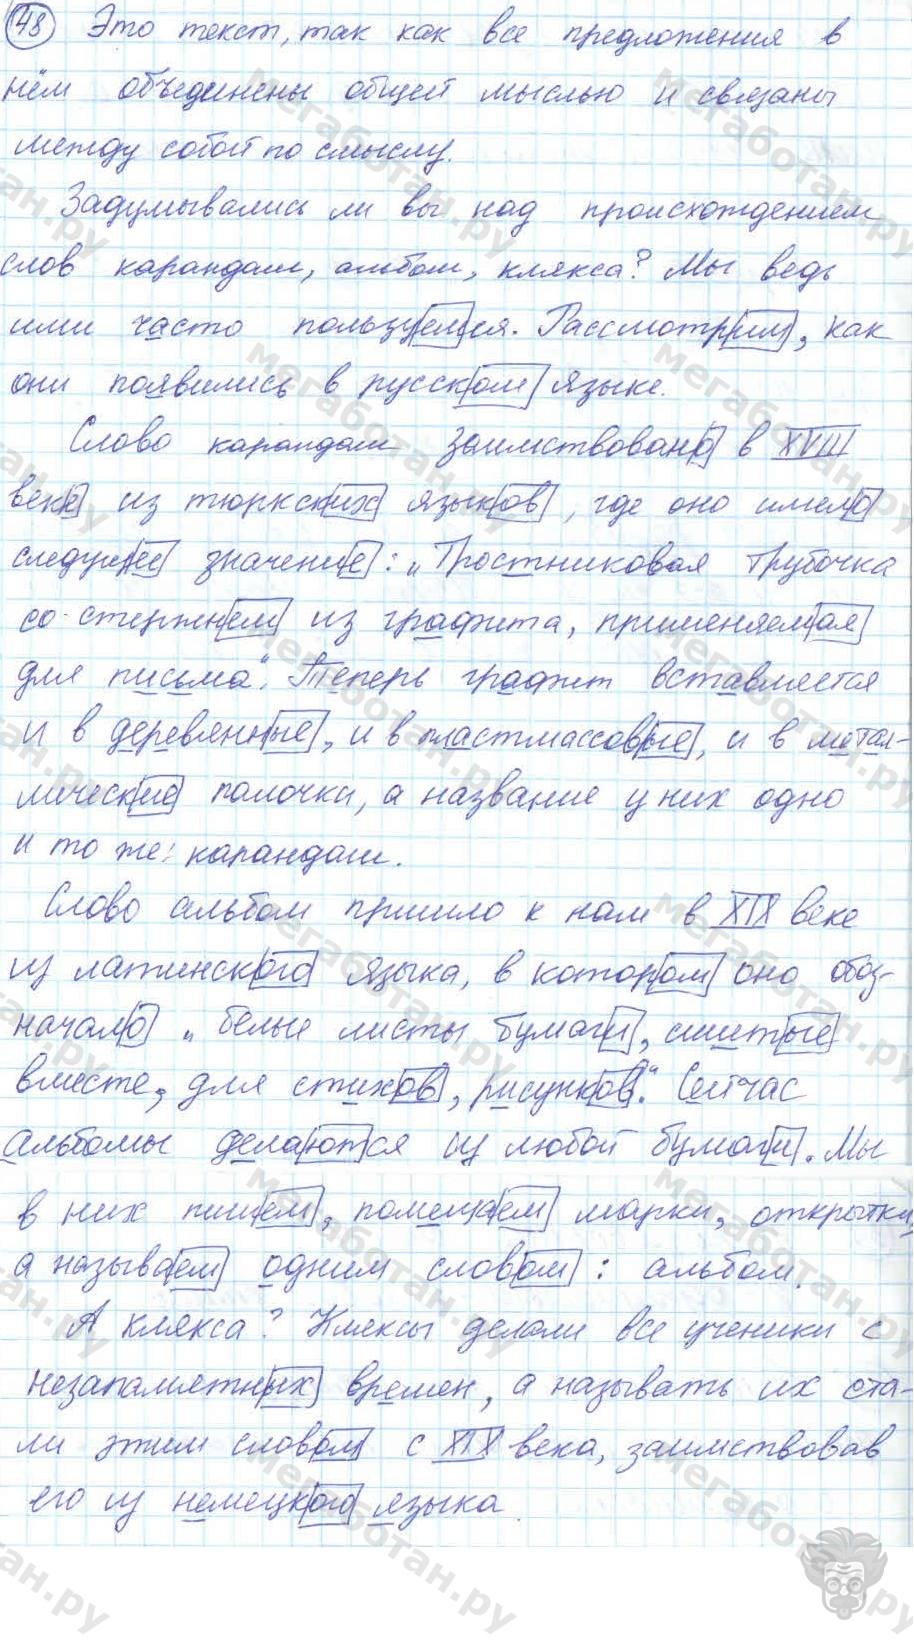 48 Это текст, так как все предложения в
нём объединены общей мыслью и связаны
между собой по смыслу.
Задумывались ли вы над происхождением
слов карандаш, альбом, клякса? Мы ведь
ими часто пользуемся. Рассмотрим, как
они появились в русском языке.
Слово карандаш заимствовано в XVIII
веке из тюркских языков, где оно имело
следущее значение: „Тростниковая трубочка
со стержнем из графита, применяемая
для письма“. Теперь графит вставляется
и в деревянные, и в пластмассовые, и в метал-
лические палочки, а название у них одно
и то же: карандаш.
Слово альбом пришло к нам в XIX веке
из латинского языка, в котором оно обоз-
начало „белые листы бумаги, сшитые
вместе, для стихов, рисунков“. Сейчас
альбомы делаются из любой бумаги. Мы
в них пишем, помещаем марки, открытки,
а называем одним словом: альбом.
А клякса? Кляксы делали все ученики с
незапамятных времен, а называть их ста-
ли этим словом с XIX века, заимствовав
его из немецкого языка.
мегаботан.ру